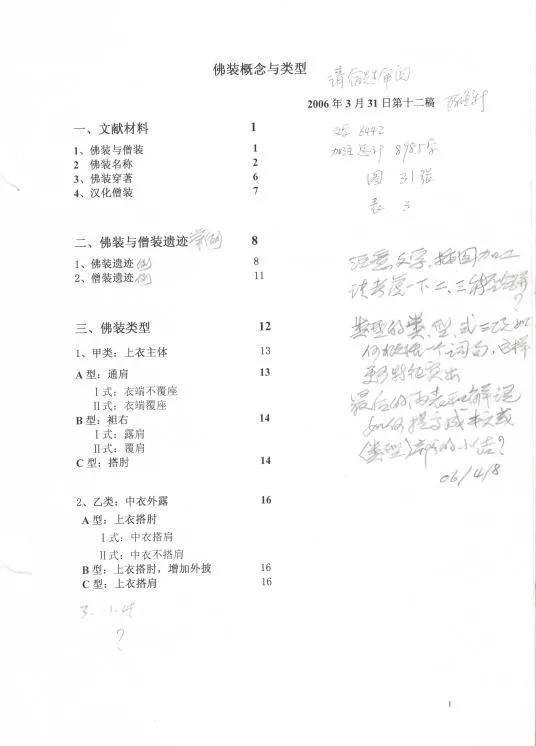 佛装概念与类型
请 审阅
2006 年 3 月 31 日第十二稿
一、文献材料 1
文字 6442
1、佛装与僧装 1
加注 共计 8985字
2 佛装名称 2
3、佛装穿著 6
图 31张
4、汉化僧装 7
表 3
二、佛装与僧装遗迹 举例 8
1、佛装遗迹 例 8
2、僧装遗迹 例 11
注意文字、插图加工
请考虑一下二、三能否
?
三、佛装类型 12
类型的类、型、式三级如
1、甲类:上衣主体 13
何 一个词句,这样
A 型:通肩 13
更 特征突出
Ⅰ式:衣端不覆座
Ⅱ式:衣端覆座
最后的 表 解说
B 型:袒右 14
如何提示成本文或
Ⅰ式:露肩
Ⅱ式:覆肩
(类型)部分的小结?
C 型:搭肘 14
06/4/8
2、乙类:中衣外露 16
A 型:上衣搭肘
Ⅰ式:中衣搭肩
Ⅱ式:中衣不搭肩
B 型:上衣搭肘,增加外披 16
C 型:上衣搭肩 16
3、小结
?
1